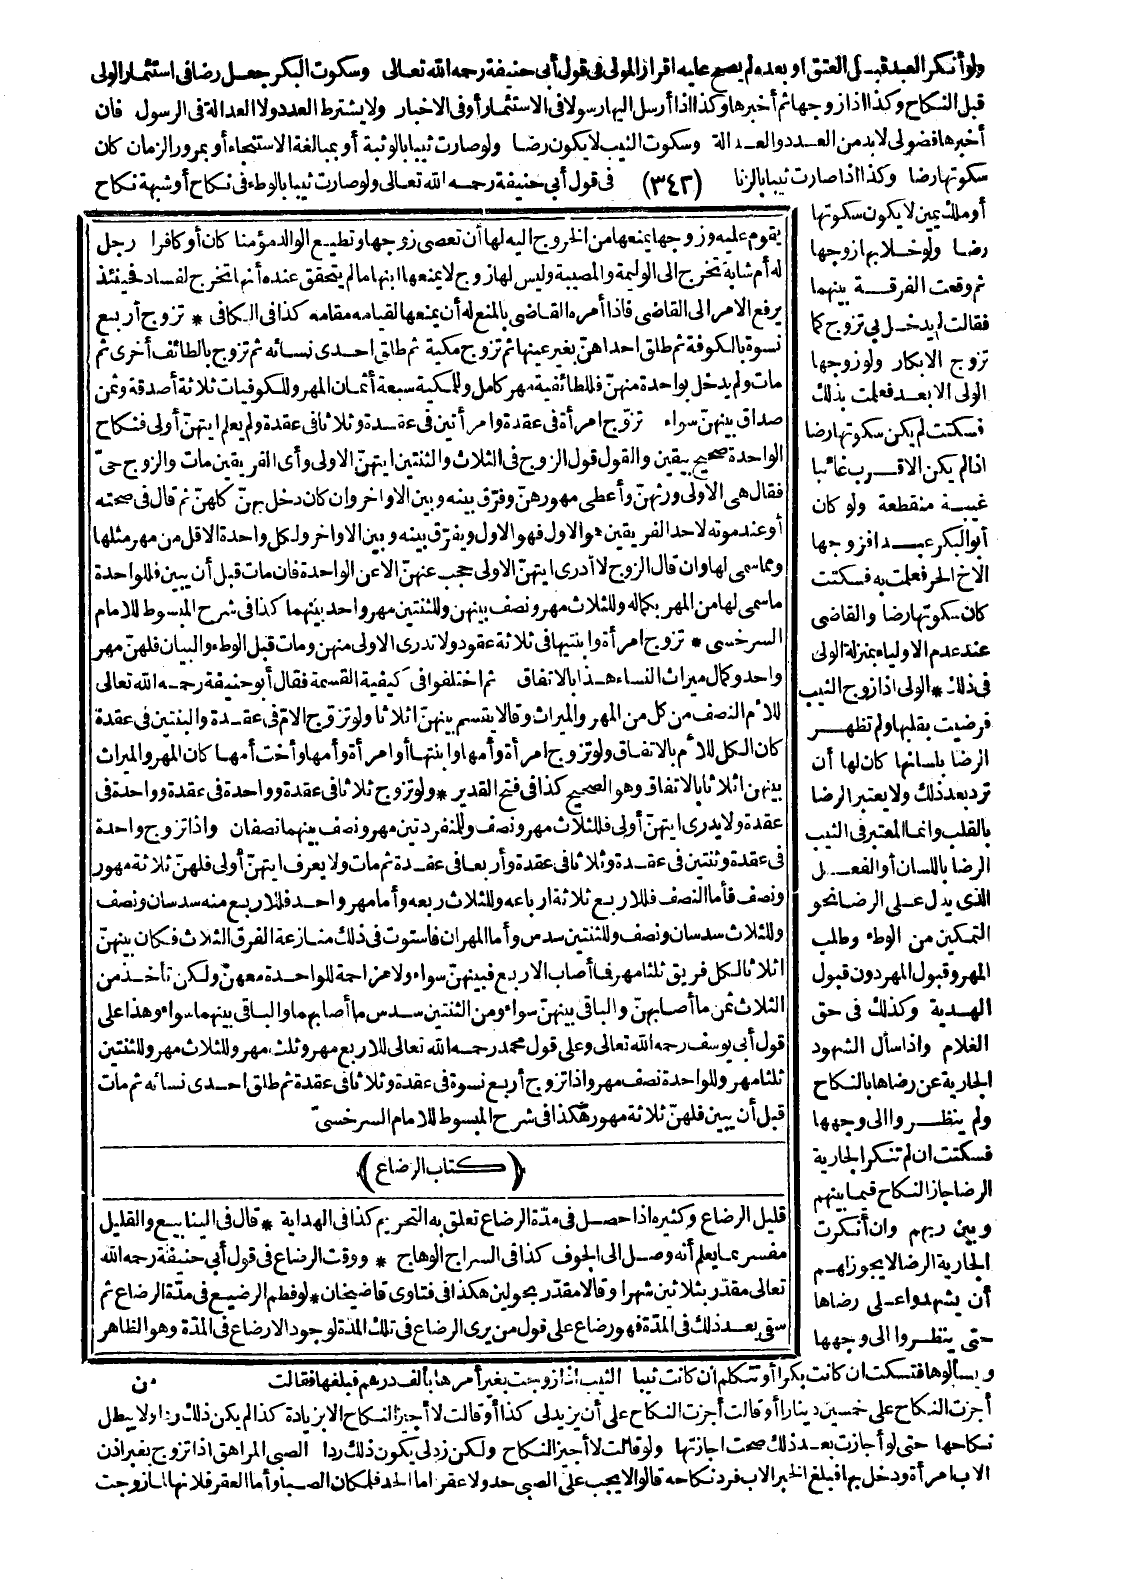 ولو أنكر العبد قبل العتق أو بعده لم يصح عليه اقرار المولى فى قول أبى حنيفة رحمه الله تعالى وسكوت البكر جعل رضا فى استئمار الولى
قبل النكاح وكذا اذا زوجها ثم أخبرها وكذا اذا أرسل اليها رسولا فى الاستئمار أو فى الاخبار ولا يشترط العدد ولا العدالة فى الرسول فان
أخبرها فضولى لا بد من العدد والعدالة وسكوت الثيب لا يكون رضا ولو صارت ثيبا بالوثبة أو بمبالغة الاستنجاء أو بمرور الزمان كان
سكوتها رضا وكذا اذا صارت ثيبا بالزنا (٣٤٢) فى قول أبى حنيفة رحمه الله تعالى ولو صارت ثيبا بالوطء فى نكاح أو شبهة نكاح
أو ملك يمين لا يكون سكوتها
رضا ولو خلا بها زوجها
ثم وقعت الفرقة بينهما
فقالت لم يدخل بى تزوج كما
تزوج الابكار ولو زوجها
الولى الابعد فعلمت بذلك
فسكتت لم يكن سكوتها رضا
اذا لم يكن الاقرب غائبا
غيبة منقطعة ولو كان
أبو البكر عبدا فزوجها
الاخ الحر فعلمت به فسكتت
كان سكوتها رضا والقاضى
عند عدم الاولياء بمنزلة الولى
فى ذلك * الولى اذا زوج الثيب
فرضيت بقلبها ولم تظهر
الرضا بلسانها كان لها أن
ترد بعد ذلك ولا يعتبر الرضا
بالقلب وانما المعتبر فى الثيب
الرضا باللسان أو الفعل
الذى يدل على الرضا نحو
التمكين من الوطء وطلب
المهر وقبول المهر دون قبول
الهدية وكذلك فى حق
الغلام واذا سأل الشهود
الجارية عن رضاها بالنكاح
ولم ينظروا الى وجهها
فسكتت ان لم تنكر الجارية
الرضا جاز النكاح فيما بينهم
وبين ربهم وان أنكرت
الجارية الرضا لا يجوز لهم
أن يشهدوا على رضاها
حتى ينظروا الى وجهها
يقوم عليه وزوجها يمنعها من الخروج اليه لها أن تعصى زوجها وتطيع الوالد مؤمنا كان أو كافرا رجل
له أم شابة تخرج الى الوليمة والمصيبة وليس لها زوج لا يمنعها ابنها ما لم يتحقق عنده أنها تخرج لفساد فحينئذ
يرفع الامر الى القاضى فاذا أمره القاضى بالمنع له أن يمنعها لقيامه مقامه كذا فى الكافى * تزوج أربع
نسوة بالكوفة ثم طلق احداهن بغير عينها ثم تزوج مكية ثم طلق احدى نسائه ثم تزوج بالطائف أخرى ثم
مات ولم يدخل بواحدة منهن فللطائفية مهر كامل وللمكية سبعة أثمان المهر وللكوفيات ثلاثة أصدقة وثمن
صداق بينهن سواء تزوّج امرأة فى عقدة وامرأتين فى عقدة وثلاثا فى عقدة ولم يعلم ايتهن أولى فنكاح
الواحدة صحيح بيقين والقول قول الزوج فى الثلاث والثنتين ايتهن الاولى وأى الفريقين مات والزوج حىّ
فقال هى الاولى ورثهن وأعطى مهورهن وفرّق بينه وبين الاواخر وان كان دخل بهن كلهن ثم قال فى صحته
أو عند موته لاحد الفريقين هو الاول فهو الاول ويفرّق بينه وبين الاواخر ولكل واحدة الاقل من مهر مثلها
ومما سمى لها وان قال الزوج لا أدرى ايتهن الاولى حجب عنهن الا عن الواحدة فان مات قبل أن يبين فللواحدة
ما سمى لها من المهر بكماله وللثلاث مهر ونصف بينهن وللثنتين مهر واحد بينهما كذا فى شرح المبسوط للامام
السرخسى * تزوج امرأة وابنتيها فى ثلاثة عقود ولا تدرى الاولى منهن ومات قبل الوطء والبيان فلهن مهر
واحد وكمال ميراث النساء هذا بالاتفاق ثم اختلفوا فى كيفية القسمة فقال أبو حنيفة رحمه الله تعالى
للام النصف من كل من المهر والميراث وقالا يقسم بينهن اثلاثا ولو تزوج الام فى عقدة والبنتين فى عقدة
كان الكل للام بالاتفاق ولو تزوج امرأة وأمها وابنتها أو امرأة وأمها وأخت أمها كان المهر والميراث
بينهن اثلاثا بالاتفاق وهو الصحيح كذا فى فتح القدير * ولو تزوج ثلاثا فى عقدة وواحدة فى عقدة وواحدة فى
عقدة ولا يدرى ايتهن أولى فللثلاث مهر ونصف وللمنفردتين مهر ونصف بينهما نصفان واذا تزوج واحدة
فى عقدة وثنتين فى عقدة وثلاثا فى عقدة وأربعا فى عقدة ثم مات ولا يعرف ايتهن أولى فلهن ثلاثة مهور
ونصف فأما النصف فللاربع ثلاثة ارباعه وللثلاث ربعه وأما مهر واحد فللاربع منه سدسان ونصف
وللثلاث سدسان ونصف وللثنتين سدس وأما المهران فاستوت فى ذلك منازعة الفرق الثلاث فكان بينهن
اثلاثا لكل فريق ثلثا مهر فما أصاب الاربع فبينهن سواء ولا مزاحمة للواحدة معهن ولكن تأخذ من
الثلاث ثمن ما أصابهن والباقى بينهن سواء ومن الثنتين سدس ما أصابهما والباقى بينهما سواء وهذا على
قول أبى يوسف رحمه الله تعالى وعلى قول محمد رحمه الله تعالى للاربع مهر وثلث مهر وللثلاث مهر وللثنتين
ثلثا مهر وللواحدة نصف مهر واذا تزوج أربع نسوة فى عقدة وثلاثا فى عقدة ثم طلق احدى نسائه ثم مات
قبل أن يبين فلهن ثلاثة مهور هكذا فى شرح المبسوط للامام السرخسىّ
(كتاب الرضاع)
قليل الرضاع وكثيره اذا حصل فى مدّة الرضاع تعلق به التحريم كذا فى الهداية * قال فى الينابيع والقليل
مفسر بما يعلم أنه وصل الى الجوف كذا فى السراج الوهاج * ووقت الرضاع فى قول أبى حنيفة رحمه الله
تعالى مقدّر بثلاثين شهرا وقالا مقدّر بحولين هكذا فى فتاوى قاضيخان * لو فطم الرضيع فى مدّة الرضاع ثم
سقى بعد ذلك فى المدّة فهو رضاع على قول من يرى الرضاع فى تلك المدّة لوجود الارضاع فى المدّة وهو الظاهر
ويسألوها فتسكت ان كانت بكرا أو تتكلم ان كانت ثيبا الثيب اذا زوجت بغير أمرها بألف درهم فبلغها فقالت من
أجزت النكاح على خمسين دينارا أو قالت أجزت النكاح على أن يزيدلى كذا أو قالت لا أجيز النكاح الا بزيادة كذا لم يكن ذلك ردا ولا يبطل
نكاحها حتى لو أجازت بعد ذلك صحت اجازتها ولو قالت لا أجيز النكاح ولكن زدلى يكون ذلك ردا الصبى المراهق اذا تزوج بغير اذن
الاب امرأة ودخل بها فبلغ الخبر الاب فرد نكاحه قالوا لا يجب على الصبى حد ولا عقر اما الحد فلمكان الصبا وأما العقر فلانها لما زوجت